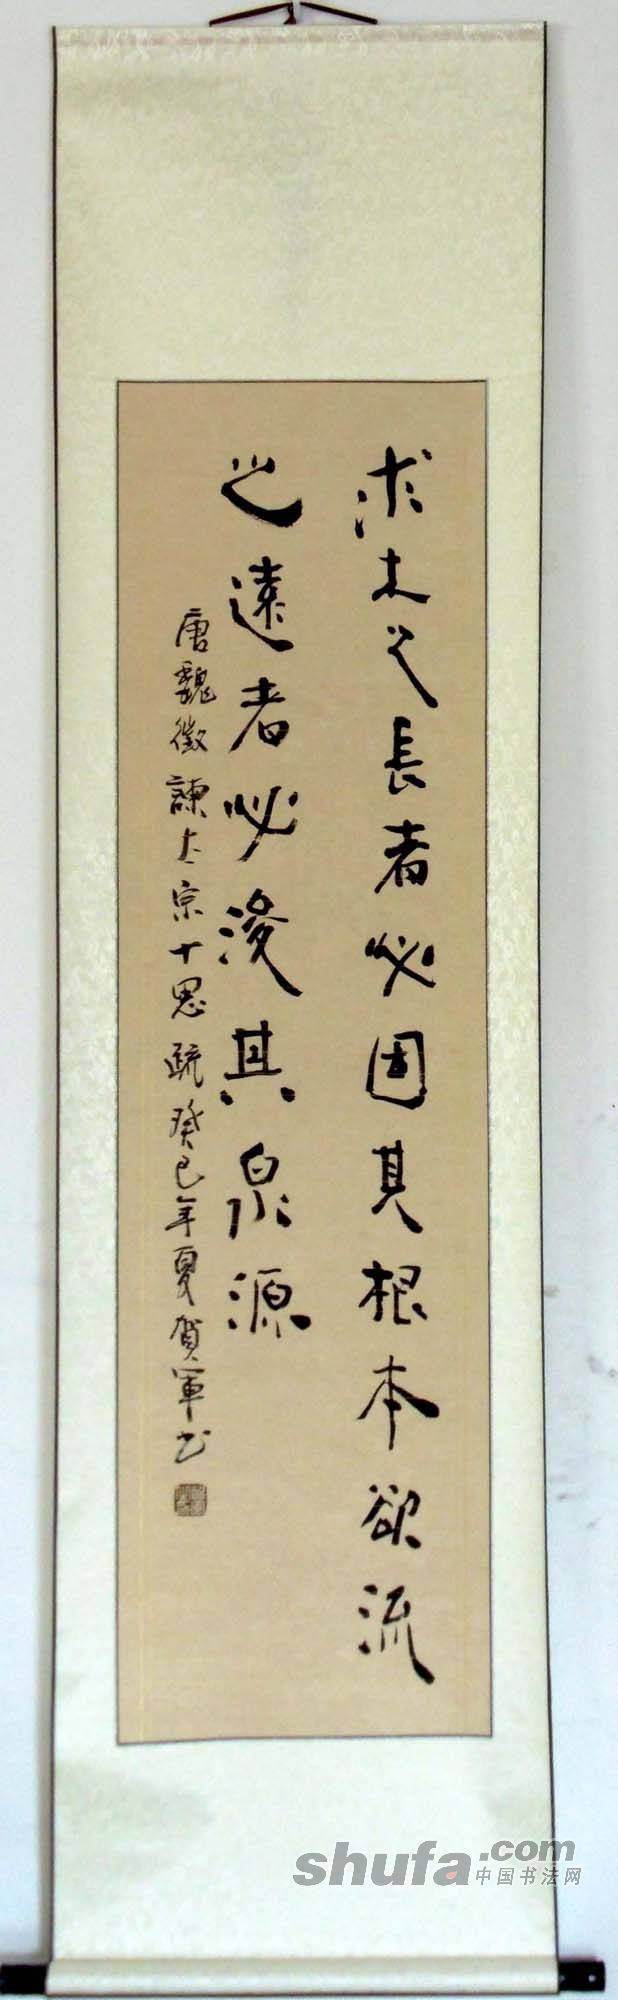 求木之長者必固其根本欲流
之遠者必浚其泉源
唐魏徵諫太宗十思疏癸巳年夏賀軍书
shufa.com
中国书法网